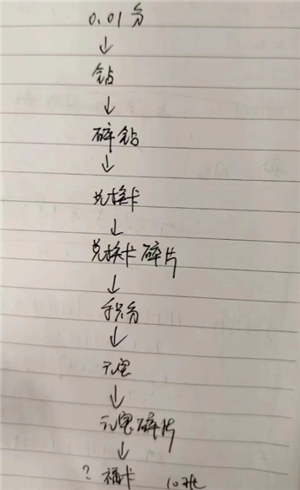 0.01分
↓
钻
↓
碎钻
↓
兑换卡
↓
兑换卡碎片
↓
积分
↓
元宝
↓
元宝碎片
↓
? 福卡